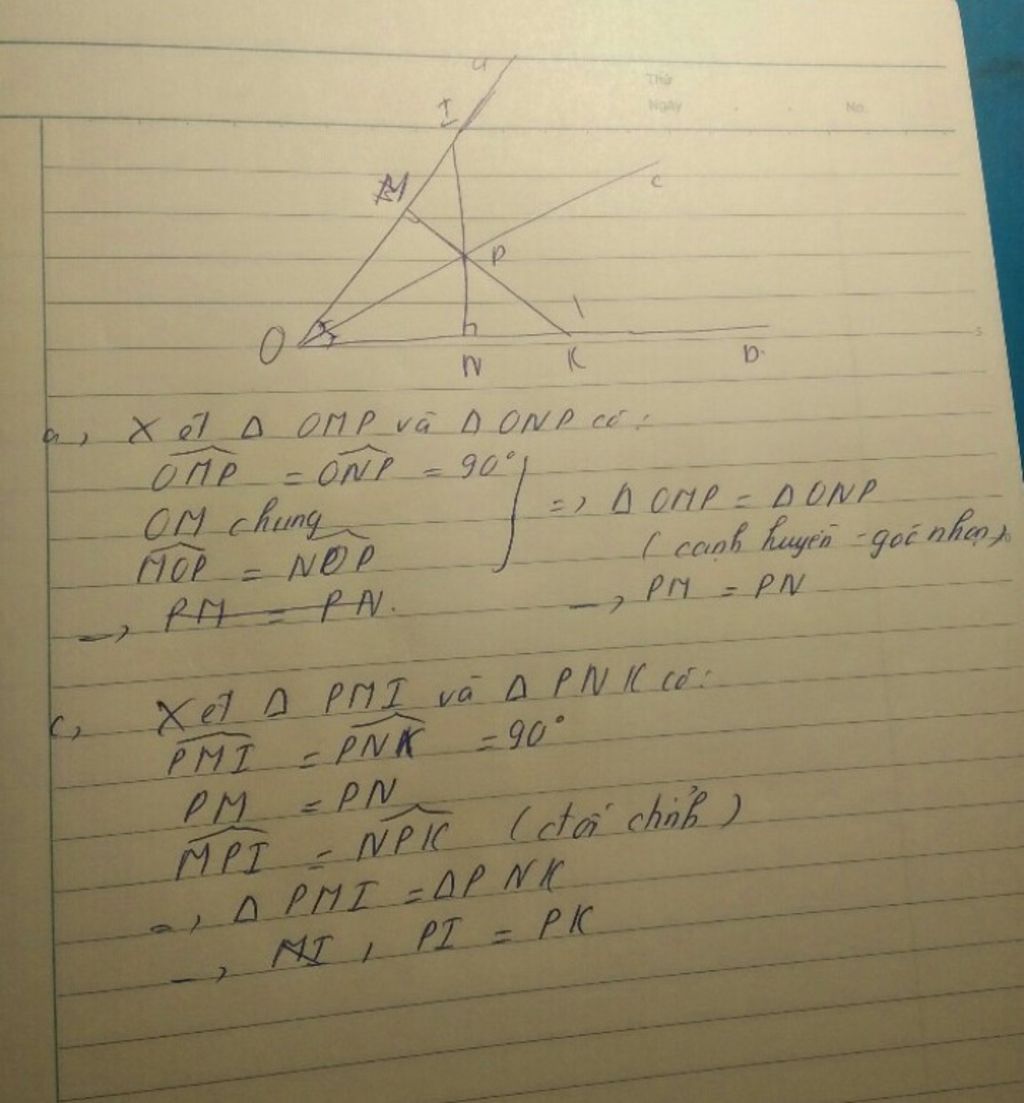 Thứ
Ngày . . No.
a
I
M
c
P
O
N
K
D.
a, Xét Δ OMP và Δ ONP có:
OMP = ONP = 90°
OM chung
MOP = NOP
=> Δ OMP = Δ ONP
(cạnh huyền - góc nhọn).
→ PM = PN.
→ PM = PN
c, Xét Δ PMI và Δ PNK có:
PMI = PNK = 90°
PM = PN
MPI = NPK (đối chỉnh)
=> Δ PMI = Δ PNK
→ MI , PI = PK